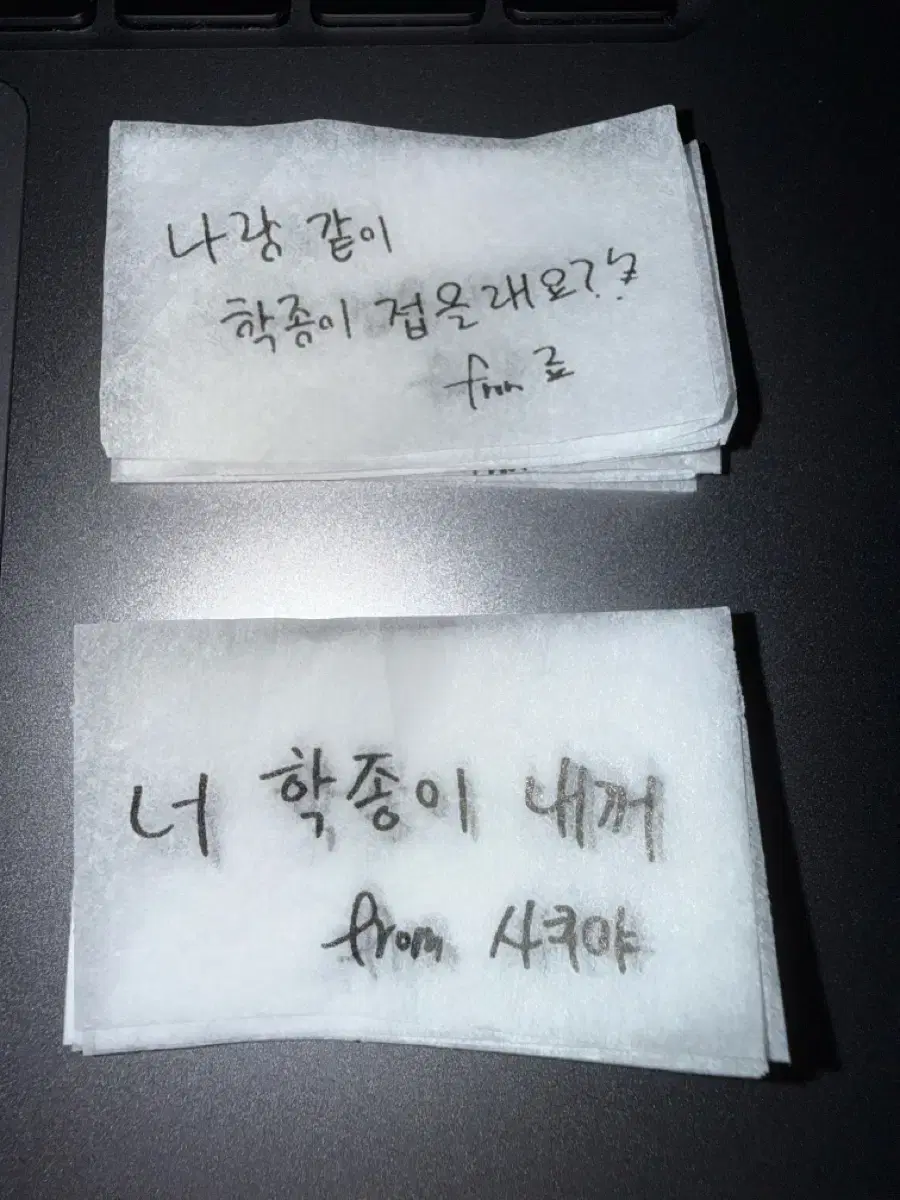 나랑 같이
학종이 접을래요??
from 료
너 학종이 내꺼
from 사쿠야